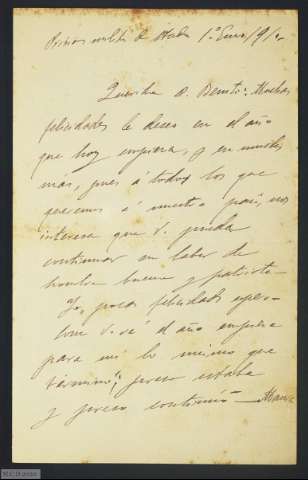 Prisión militar de 1.º Enero/91
Querido D. Benito: Muchas
felicidades le deseo en el año
que hoy empieza, y en muchos
más, pues á todos los que
queremos á nuestro país, nos
interesa que V. pueda
continuar su labor de
hombre bueno y patriota.
Yo, pocas felicidades espero.
Como V. vé el año empieza
para mi lo mismo que
terminó; preso estaba
y preso continúo